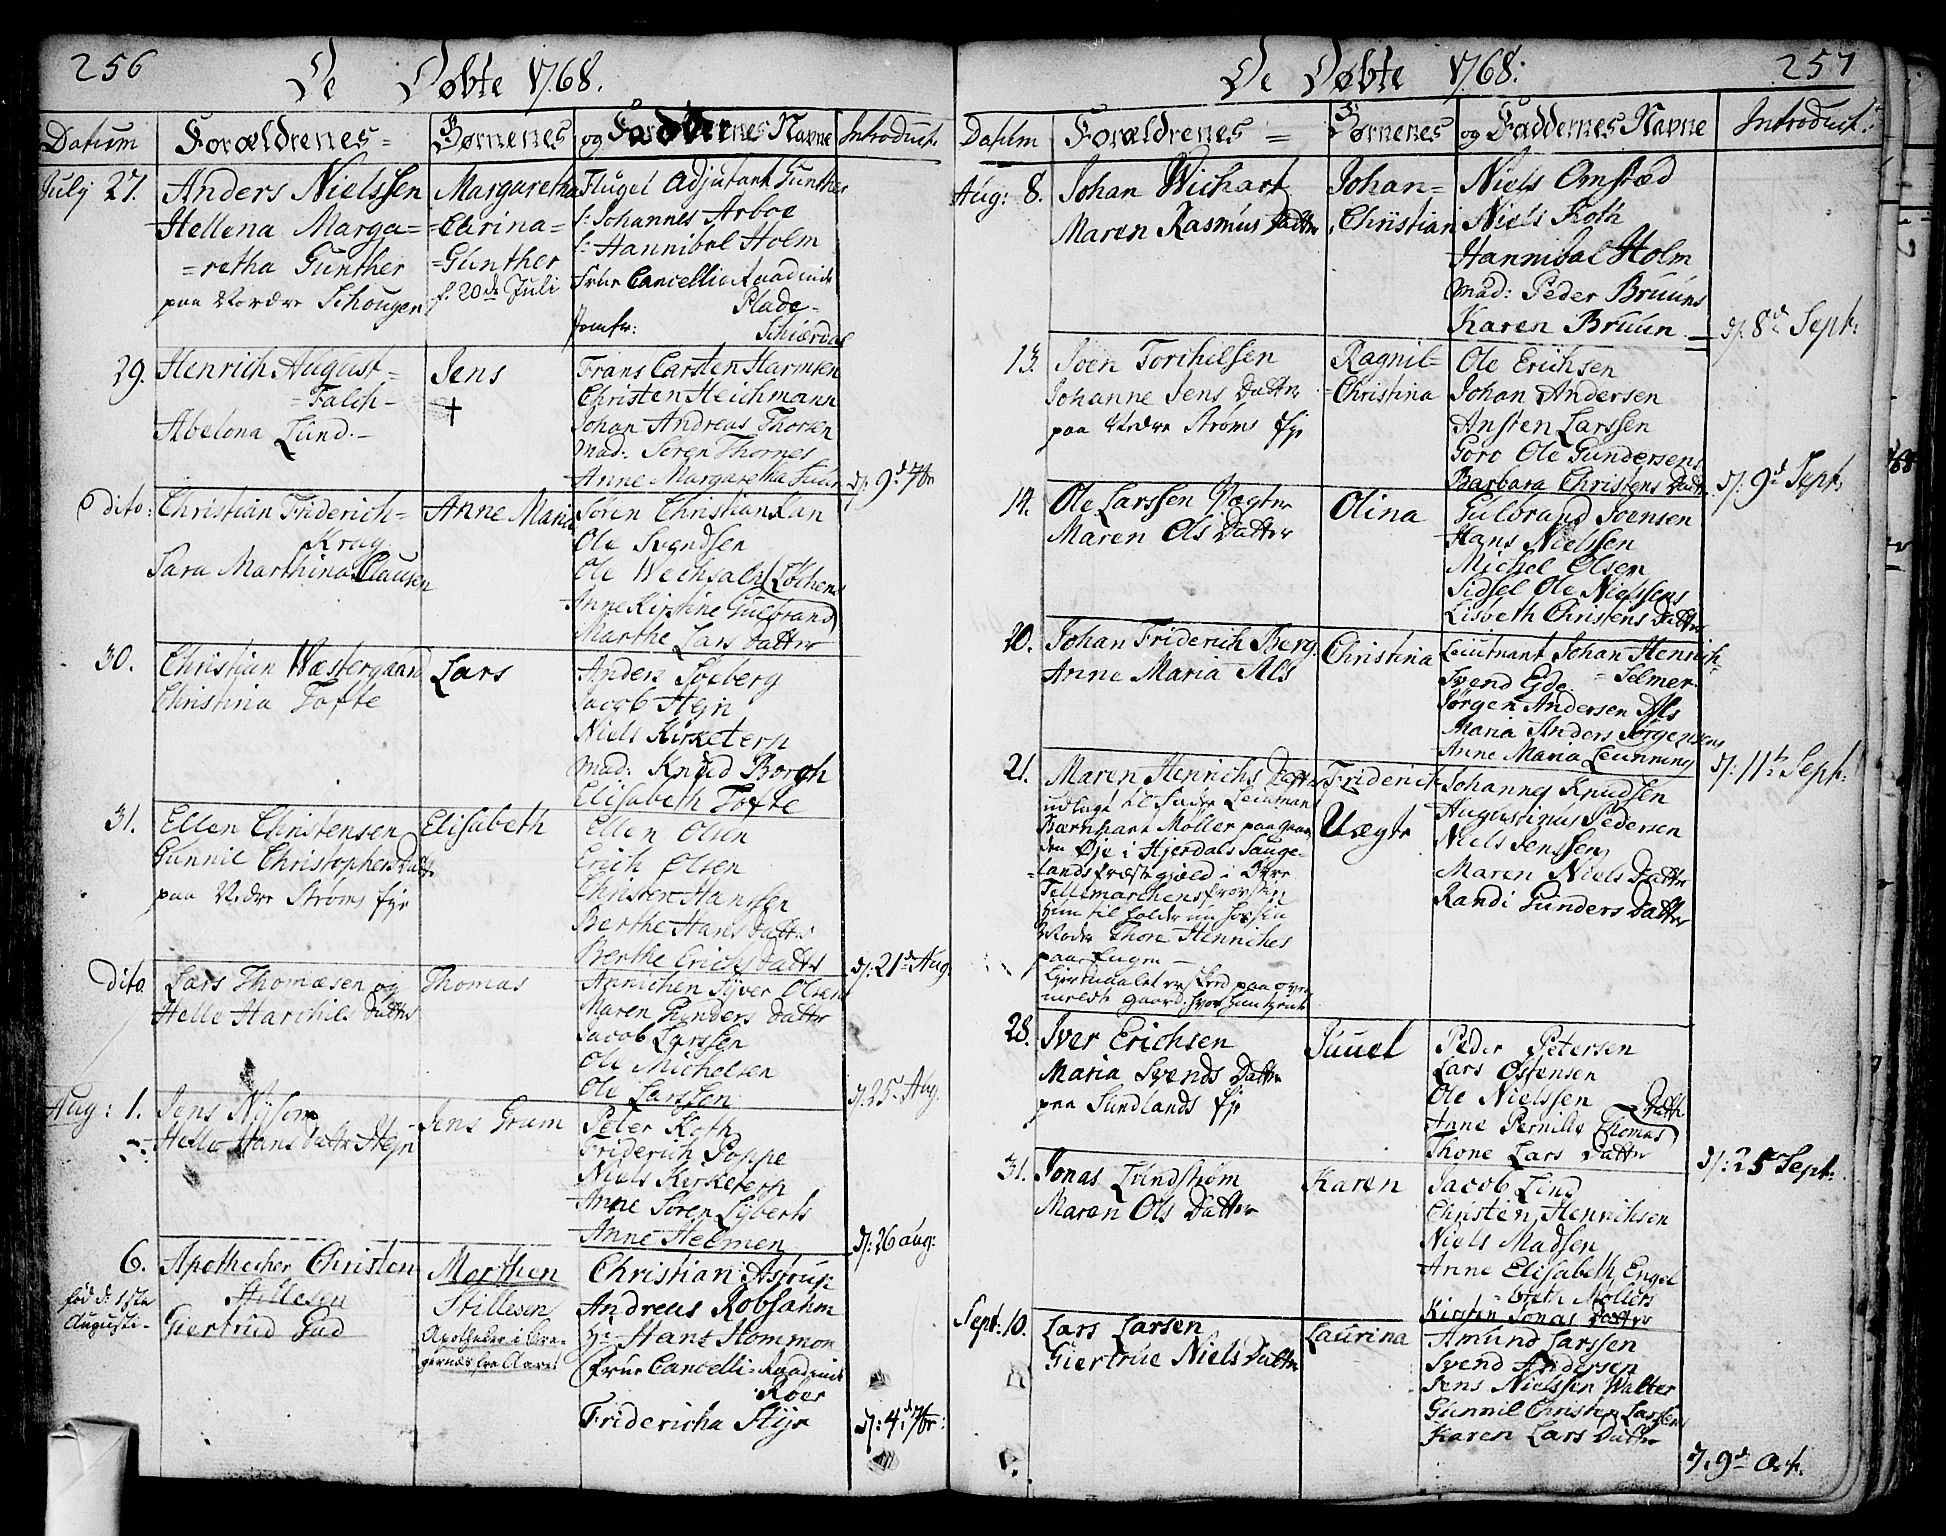 256
De Døbte 1768.
Datum Forældrenes= Børnenes og Faddernes Navne Introduct:
July 27. Anders Nielssen
Hellena Marga=
=retha Gunther
paa Nordre Schougen
Margaretha
=Carina=
=Gunther
f: 20de Juli
Flugel Adjutant Gunther
S: Johannes Arboe
S: Hannibal Holm
Frue Cancellie Raadinde
Plade-
Jomfr: Schierdal
29. Henrich August=
=Falch-
Abelona Lund.-
Jens
+
Frans Carsten Harmsen
Christen Heichmann
Johan Andreas Thorsen
Mad: Søren Thornes
Anne Margaretha Lund
J: 9d 7br
Dito: Christian Friderich=
Krag.
Sara Marthina Clausen
Anne Maria
Søren Christian Lan
Ole Svendsen
Ole
Anne Kirstine Gulbrand
Marthe Lars Datter
30. Christian Wæstergaard
Christina Tofte
Lars
Anders Soeberg
Jacob Hejn
Niels Kirketerp
Mad: Knud Borgh
Elisabeth Tofte
31. Ellen Christensen
Gunnil Christophers Datter
paa Nedre Strøms Eje
Elisabeth
Ellen Olsen
Erich Olsen
Christen Hanssen
Berthe Hans Datter
Berthe Erichs Datter
J: 21de Aug
Dito. Lars Thomæsen og
Helle Harchils Datter
Thomas
Annichen Syver Olsens
Maren Gunders Datter
Jacob Larssen
Ole Michelsen
Ole Larssen
J: 25 Aug.
Aug: 1. Jens Nysom
Helle Hans Datter Hejn
Jens Gram
Peter Koth
Friderich Poppe
Niels Kirketerp
Anne Søren Lyberts
Anne Helmen
J: 26 aug:
6. Apothecher Christen
Stillesen
Giertrud Gad
fød d: 1ste
Augusti-
Morthen
Stillesen
Christian Astrup
Andreas Robsahm
Hr Hans Hommon
Frue Cancelli=Raadinde
Roer
Fridericha Stijr
J: 4d 7br:
257
De Døbte 1768:
Datum Forældrenes = Børnenes og Faddernes Navne Introduct:
Aug: 8. Johan Wichart
Maren Rasmus Datter
Johan=
Christian
Niels Omstæd
Niels Koth
Hannibal Holm
Mad: Peder Bruuns
Karen Bruun
J: 8de Sept:
13. Soen Torchelsen
Johanne Jens Datter
paa Nedre Strøms Eje
Ragnil=
=Christina
Ole Erichsen
Johan Andersen
Ansten Larssen
Goro Ole Gundersens
Barbara Christens Datter
J: 9d Sept:
14. Ole Larssen Vægter
Maren Ols Datter
Olina
Gulbrand Joensen
Hans Nielssen
Michel Olsen
Sidsel Ole Nielssens
Lisbeth Christens Datter
20. Johan Friderich Berg
Anne Maria Als
Christina
Lieutnant Johan Henrich=
=Selmer
Svend Ede
Jørgen Andersen Als
Maria Anders Jørgensens
Anne Maria Leunning
J: 11te Sept:
21. Maren Henrichs Datter
udlagt til Fader Leutnant
Barnhart Møller paa gaar=
den Øje i Hjerdals Sauge=
=lands Præstegield i Øvre
Tellemarchens Provstie
hun til holder un hos sin
Moder Thore Henriches
paa Eugen-
Giærningen er skeed paa oven
meldte gaard, hvor hun tiente
Friderich
Uægte
Johannes Knudsen
Augustinus Pedersen
Niels Jenssen
Maren Niels Datter
Randi Gunders Datter
28. Iver Erichsen
Maria Svends Datter
paa Sundlands Eje
Juuel
Peder Petersen
Lars Ostensen
Ole Nielssen
Anne Pernille Thomas Datter
Thone Lars Datter
J: 25 Sept:
31. Jonas Lundstrøm
Maren Ols Datter
Karen
Jacob Lind
Christen Henrichsen
Niels Madsen
Anne Elisabeth Engel
=breth Møllers
Kirsten Jonas Datter
Sept: 10. Lars Larsen
Giertrue Niels Datter
Laurina
Amund Larssen
Svend Andersen
Jens Nielssen Walter
Gunnil Christen Larssens
Karen Lars Datter
J: 9d Oct.